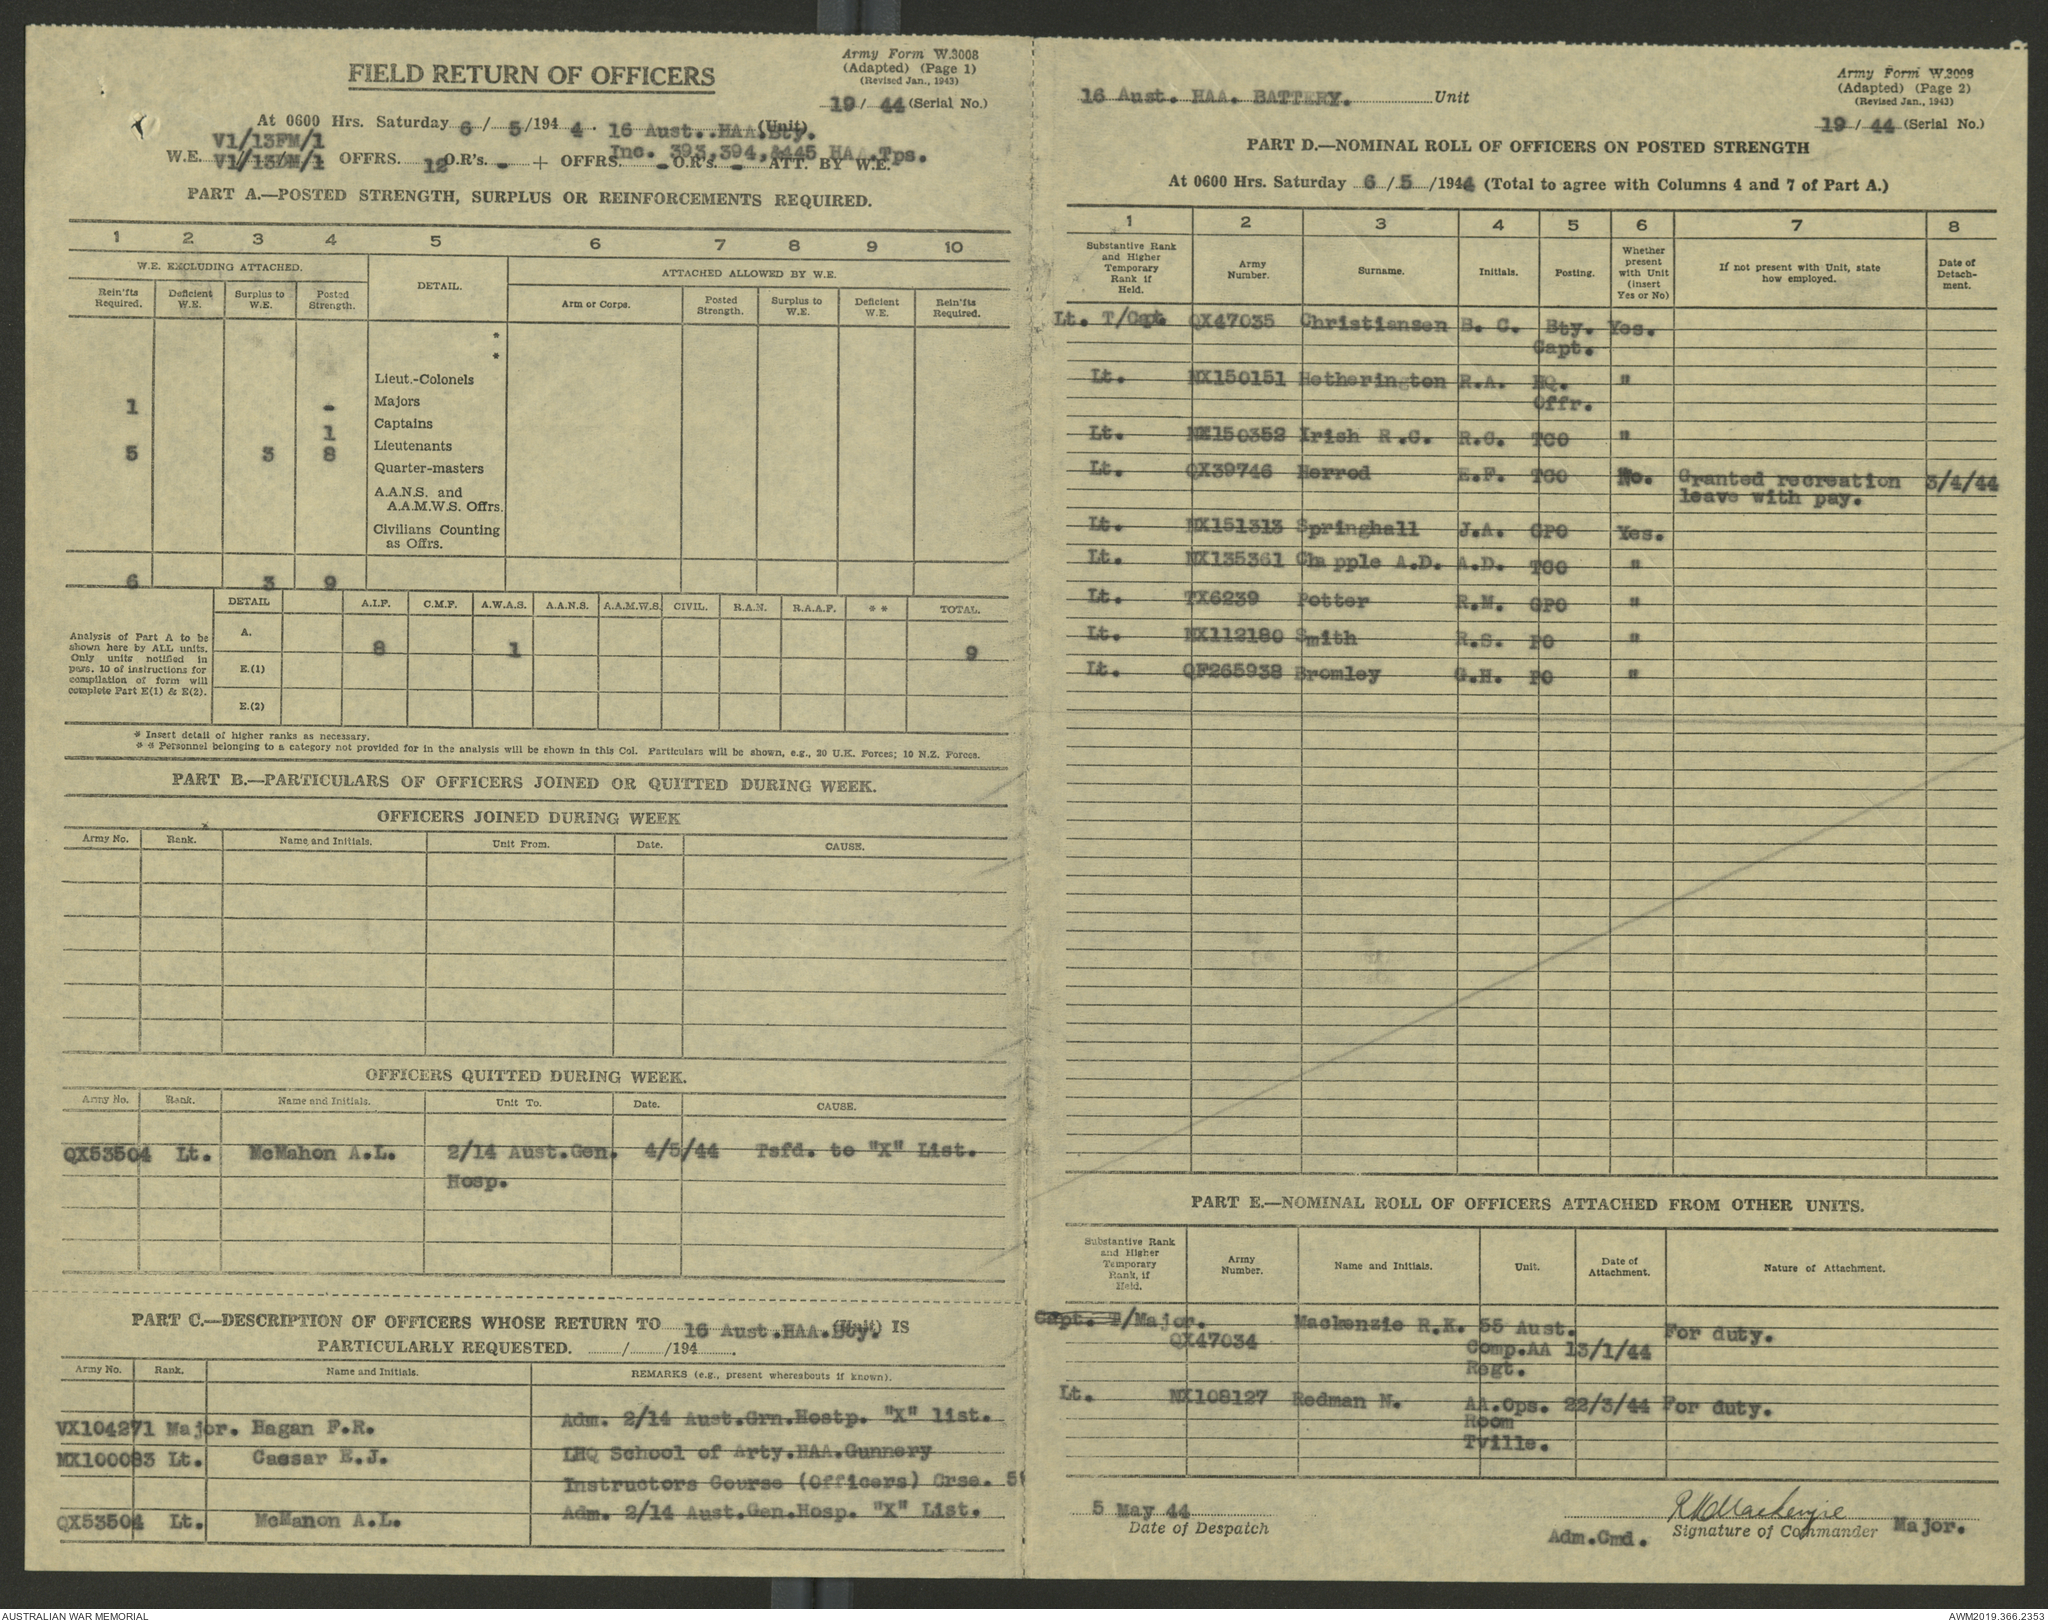 Army Form W.3008
(Adapted) (Page 1)
(Revised Jan., 1943)
FIELD RETURN OF OFFICERS
19 / 44 (Serial No.)
At 0600 Hrs. Saturday 6 / 5 /194 4. 16 Aust. HAA.Bty. (Unit)
V1/13FM/1 Inc. 393,394,&445 HAA.Tps.
W.E. V1/13DM/1 OFFRS. 12 O.R's. - + OFFRS. - O.R's. - ATT. BY W.E.
PART A.—POSTED STRENGTH, SURPLUS OR REINFORCEMENTS REQUIRED.
1 2 3 4 5 6 7 8 9 10
W.E. EXCLUDING ATTACHED. DETAIL. ATTACHED ALLOWED BY W.E.
Rein'fts Required. Deficient W.E. Surplus to W.E. Posted Strength. Arm or Corps. Posted Strength. Surplus to W.E. Deficient W.E. Rein'fts Required.
*
*
Lieut.-Colonels
1 - Majors
1 Captains
5 3 8 Lieutenants
Quarter-masters
A.A.N.S. and
A.A.M.W.S. Offrs.
Civilians Counting
as Offrs.
6 3 9
DETAIL A.I.F. C.M.F. A.W.A.S. A.A.N.S. A.A.M.W.S. CIVIL. R.A.N. R.A.A.F. * * TOTAL.
Analysis of Part A to be
shown here by ALL units.
Only units notified in
para. 10 of instructions for
compilation of form will
complete Part E(1) & E(2).
A. 8 1 9
E.(1)
E.(2)
* Insert detail of higher ranks as necessary.
* * Personnel belonging to a category not provided for in the analysis will be shown in this Col. Particulars will be shown, e.g., 20 U.K. Forces; 10 N.Z. Forces.
PART B.—PARTICULARS OF OFFICERS JOINED OR QUITTED DURING WEEK.
OFFICERS JOINED DURING WEEK
Army No. Rank. Name and Initials. Unit From. Date. CAUSE.
OFFICERS QUITTED DURING WEEK.
Army No. Rank. Name and Initials. Unit To. Date. CAUSE.
QX53504 Lt. McMahon A.L. 2/14 Aust.Gen. 4/5/44 Tsfd. to "X" List.
Hosp.
PART C.—DESCRIPTION OF OFFICERS WHOSE RETURN TO 16 Aust.HAA.Bty. (Unit) IS
PARTICULARLY REQUESTED. / /194 .
Army No. Rank. Name and Initials. REMARKS (e.g., present whereabouts if known).
VX104271 Major. Hagan F.R. Adm. 2/14 Aust.Grn.Hostp. "X" list.
MX100083 Lt. Caesar E.J. LHQ School of Arty.HAA.Gunnery
Instructors Course (Officers) Crse. 5
QX53504 Lt. McManon A.L. Adm. 2/14 Aust.Gen.Hosp. "X" List.
Army Form W.3008
(Adapted) (Page 2)
(Revised Jan., 1943)
16 Aust. HAA. BATTERY. Unit
19 / 44 (Serial No.)
PART D.—NOMINAL ROLL OF OFFICERS ON POSTED STRENGTH
At 0600 Hrs. Saturday 6 / 5 /1944 (Total to agree with Columns 4 and 7 of Part A.)
1 2 3 4 5 6 7 8
Substantive Rank and Higher Temporary Rank if Held. Army Number. Surname. Initials. Posting. Whether present with Unit (insert Yes or No) If not present with Unit, state how employed. Date of Detach-ment.
Lt. T/Capt. QX47035 Christiansen B. C. Bty. Yes.
Capt.
Lt. NX150151 Hetherington R.A. HQ. "
Offr.
Lt. NX150352 Irish R.C. R.C. TCO "
Lt. QX39746 Herrod E.F. TCO No. Granted recreation 3/4/44
leave with pay.
Lt. NX151313 Springhall J.A. GPO Yes.
Lt. NX135361 Chapple A.D. A.D. TCO "
Lt. TX6239 Potter R.M. GPO "
Lt. NX112180 Smith R.S. PO "
Lt. QF265938 Bromley G.H. PO "
PART E.—NOMINAL ROLL OF OFFICERS ATTACHED FROM OTHER UNITS.
Substantive Rank and Higher Temporary Rank, if Held. Army Number. Name and Initials. Unit. Date of Attachment. Nature of Attachment.
Capt. T/Major. Mackenzie R.K. 55 Aust. For duty.
QX47034 Comp.AA 13/1/44
Regt.
Lt. NX108127 Redman N. AA.Ops. 22/3/44 For duty.
Room
Tville.
5 May 44 R K Mackenzie
Date of Despatch Adm.Cmd. Signature of Commander Major.
AUSTRALIAN WAR MEMORIAL AWM2019.366.2353